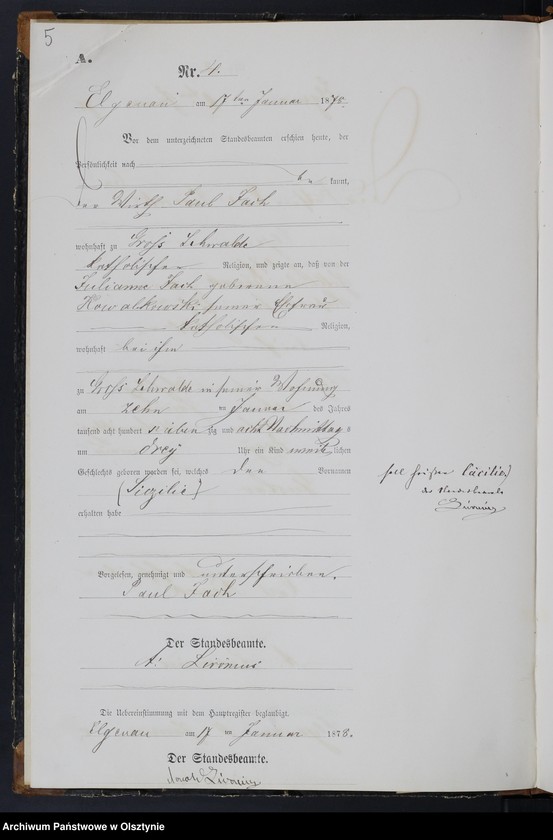 5
A.
Nr. 4.
Elgenau am 17ten Januar 1878.
Vor dem unterzeichneten Standesbeamten erschien heute, der
Persönlichkeit nach
be kannt,
der Wirth Paul Fach
wohnhaft zu Groß Lehwalde
katholischer Religion, und zeigte an, daß von der
Julianne Fach geborenen
Kowalkowski seiner Ehefrau
katholischer Religion,
wohnhaft bei ihm
zu Groß Lehwalde in seiner Wohnung
am zehn ten Januar des Jahres
tausend acht hundert sieben zig und acht Nachmittags
um drey Uhr ein Kind weib lichen
Geschlechts geboren worden sei, welches den Vornamen
(Siczilie)
erhalten habe
soll heißen Cäcilie)
der Standesbeamte
Vorgelesen, genehmigt und unterschrieben.
Paul Fach
Der Standesbeamte.
Die Uebereinstimmung mit dem Hauptregister beglaubigt.
Elgenau am 17 ten Januar 1878.
Der Standesbeamte.
Archiwum Państwowe w Olsztynie